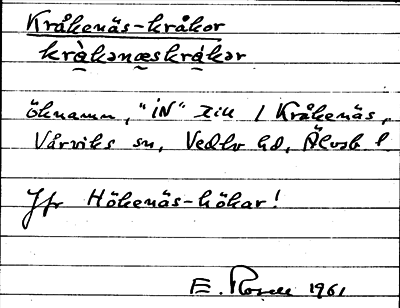 Kråkenäs-kråkor
kràkənæskràkər
öknamn, "iN" till / Kråkenäs,
Vårviks sn, Vedbo hd, Älvsb l
Jfr Hökenäs-hökar!
E. 1961